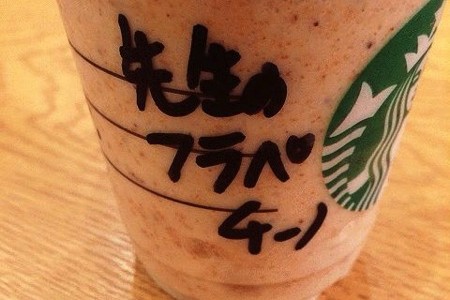 先生の
フラペ
チーノ